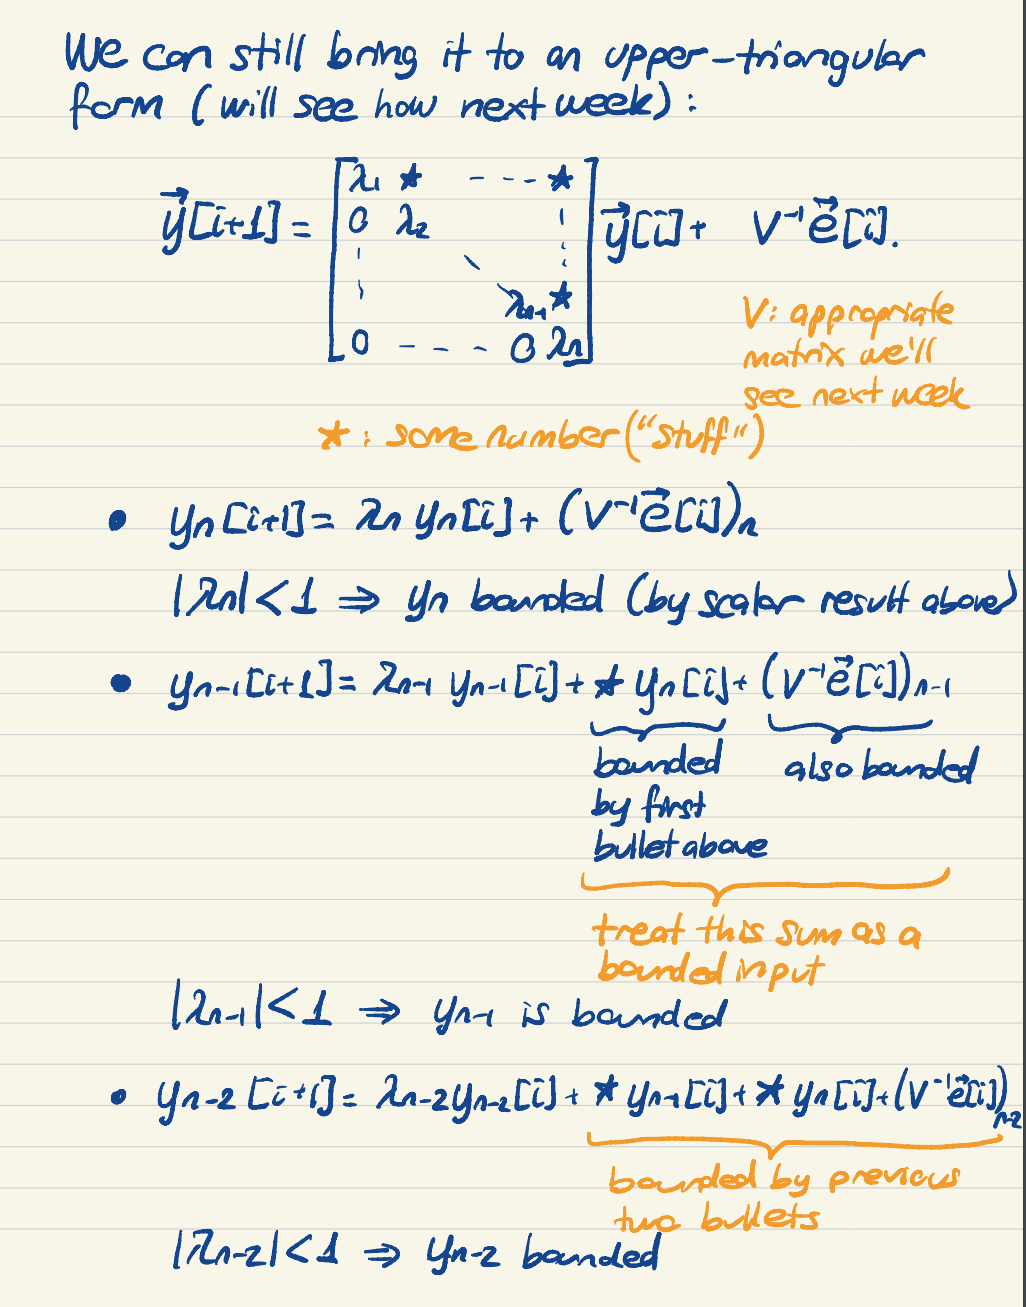 We can still bring it to an upper-triangular
form (will see how next week):
y⃗[i+1] = [λ₁ ★ - - - ★
0 λ₂
λₙ₋₁ ★
0 - - - 0 λₙ] y⃗[i] + V⁻¹e⃗[i].
V: appropriate
matrix we'll
see next week
★: some number ("stuff")
• yₙ[i+1] = λₙ yₙ[i] + (V⁻¹e⃗[i])ₙ
|λₙ| < 1 ⇒ yₙ bounded (by scalar result above)
• yₙ₋₁[i+1] = λₙ₋₁ yₙ₋₁[i] + ★ yₙ[i] + (V⁻¹e⃗[i])ₙ₋₁
bounded
by first
bullet above
also bounded
treat this sum as a
bounded input
|λₙ₋₁| < 1 ⇒ yₙ₋₁ is bounded
• yₙ₋₂[i+1] = λₙ₋₂yₙ₋₂[i] + ★ yₙ₋₁[i] + ★ yₙ[i] + (V⁻¹e⃗[i])ₙ₋₂
bounded by previous
two bullets
|λₙ₋₂| < 1 ⇒ yₙ₋₂ bounded